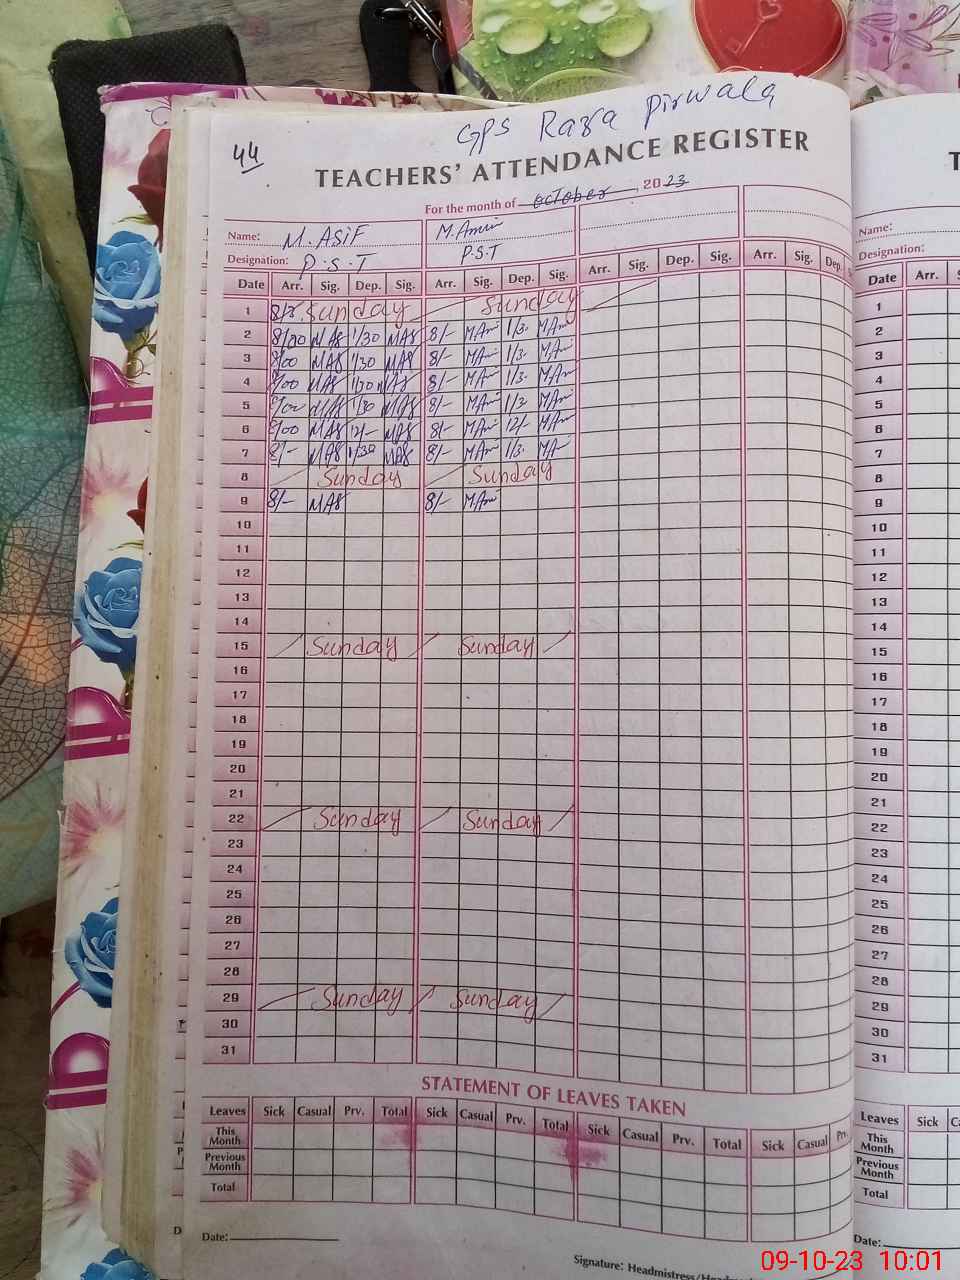 GPS Razra Pirwala
44
TEACHERS' ATTENDANCE REGISTER
For the month of October, 2023
Name: M. ASiF M. Amin
Designation: P.S.T P.S.T
Date Arr. Sig. Dep. Sig. Arr. Sig. Dep. Sig. Arr. Sig. Dep. Sig. Arr. Sig. Dep.
1 Sunday Sunday
2 8/00 MAS 1/30 MAS 8/- MAm 1/3. MAm
3 8/00 MAS 1/30 MAS 8/- MAm 1/3. MAm
4 8/00 MAS 1/30 MAS 8/- MAm 1/3. MAm
5 8/00 MAS 1/30 MAS 8/- MAm 1/3. MAm
6 8/00 MAS 12/- MAS 8/- MAm 12/- MAm
7 8/- MAS 1/30 MAS 8/- MAm 1/3. MAm
8 Sunday Sunday
9 8/- MAS 8/- MAm
10
11
12
13
14
15 Sunday Sunday
16
17
18
19
20
21
22 Sunday Sunday
23
24
25
26
27
28
29 Sunday Sunday
30
31
STATEMENT OF LEAVES TAKEN
Leaves Sick Casual Prv. Total Sick Casual Prv. Total Sick Casual Prv. Total Sick Casual Prv.
This Month
Previous Month
Total
Date:
Signature: Headmistress/
T
Name:
Designation:
Date Arr.
1
2
3
4
5
6
7
8
9
10
11
12
13
14
15
16
17
18
19
20
21
22
23
24
25
26
27
28
29
30
31
Leaves Sick
This Month
Previous Month
Total
Date:
09-10-23 10:01